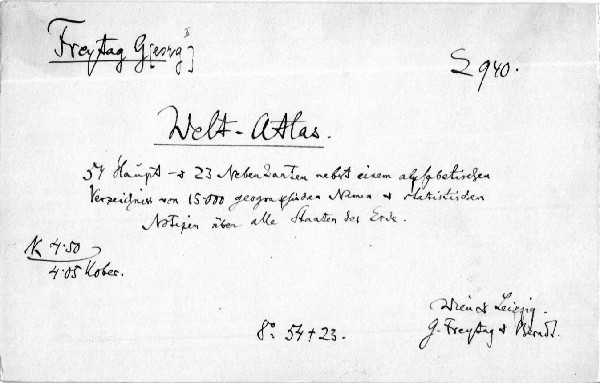 Freytag G[eorg]
S 940.
Welt-Atlas.
54 Haupt- u 23 Nebenkarten nebst einem alphabetischen
Verzeichniss von 15.000 geographischen Namen u statistischen
Notizen über alle Staaten der Erde.
K 4·50
4·05 Kober.
Wien u Leipzig.
G. Freytag u Berndt.
8° 54 + 23.